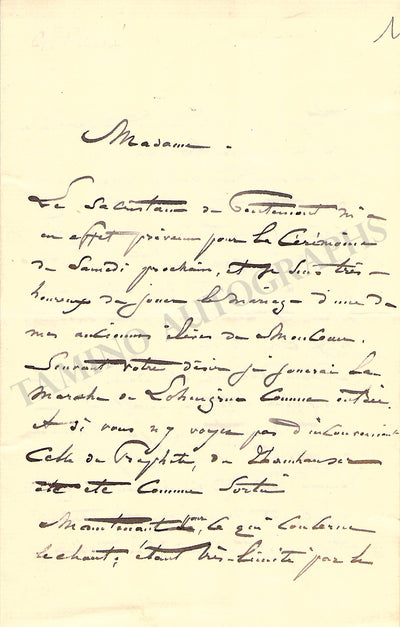 1
Madame.
Le Sacristain de Pentemont m'a
en effet prévenu pour la Cérémonie
de Samedi prochain, et je suis très
heureux de jouer le mariage d'une de
mes anciennes élèves de Monceau.
Suivant votre désir je jouerai la
Marche de Lohengrin comme entrée.
Et si vous n'y voyez pas d'inconvénient
celle du Prophète, du Thannhauser
etc etc comme sortie
Maintenant pour ce qui concerne
le chant, étant très-limité par le
TAMINO AUTOGRAPHS